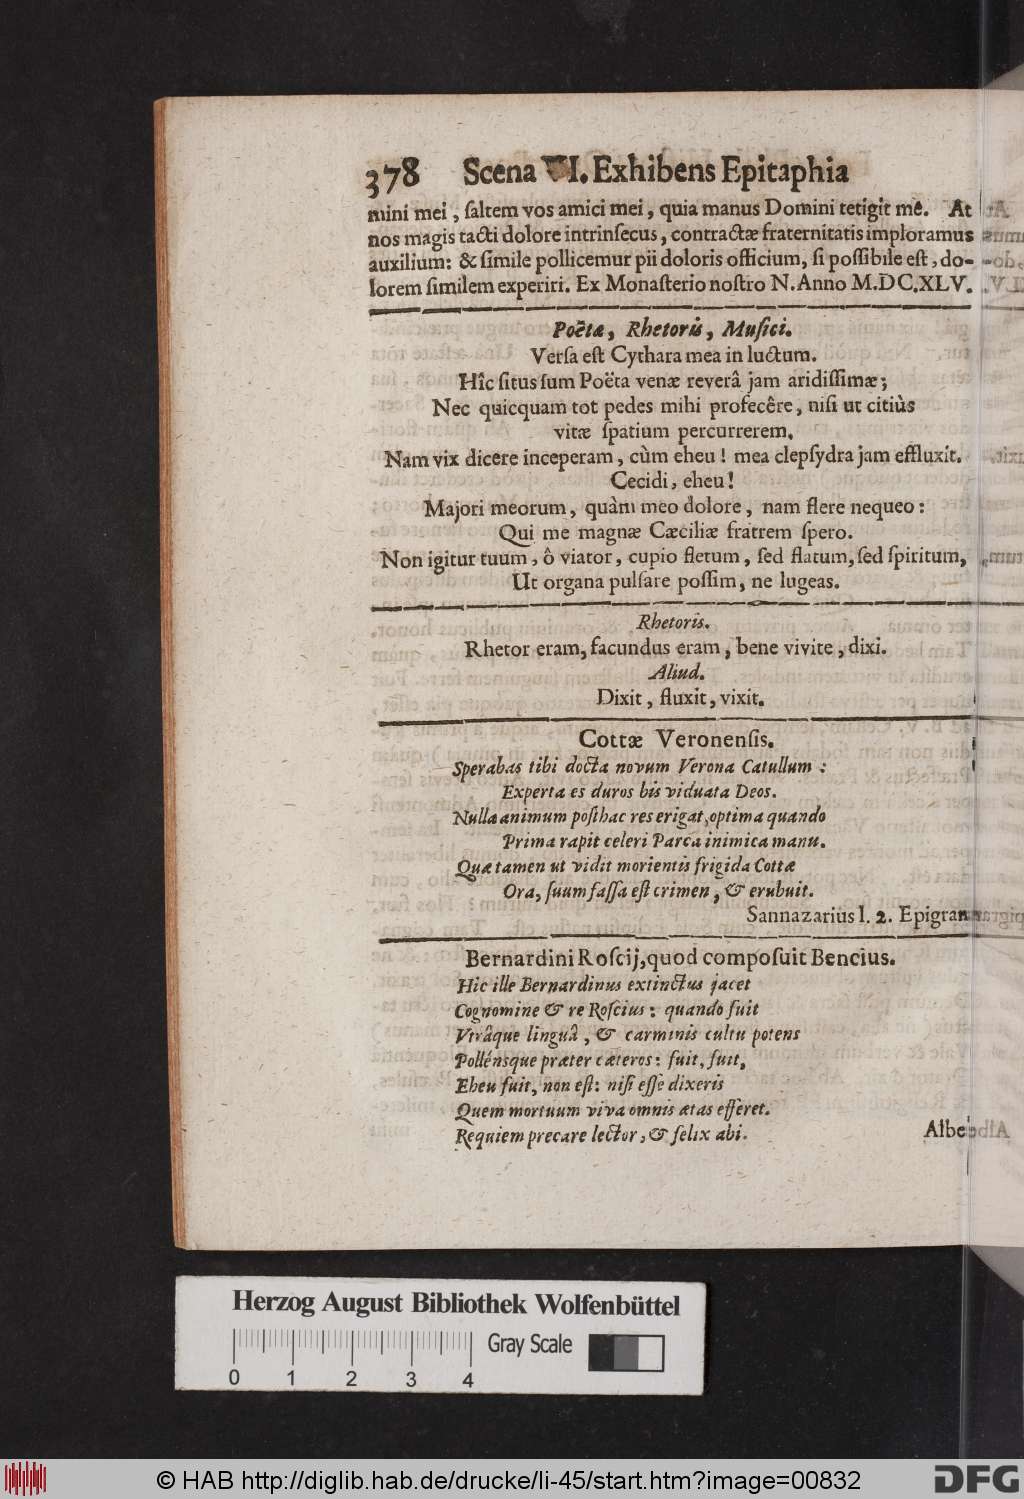 378 Scena VI. Exhibens Epitaphia
mini mei, ſaltem vos amici mei, quia manus Domini tetigit mê. At
nos magis tacti dolore intrinſecus, contractæ fraternitatis imploramus
auxilium: & ſimile pollicemur pii doloris officium, ſi poſſibile eſt, do-
lorem ſimilem experiri. Ex Monaſterio noſtro N. Anno M.DC.XLV.
Poëtæ, Rhetoris, Muſici.
Verſa eſt Cythara mea in luctum.
Hîc ſitus ſum Poëta venæ reverâ jam aridiſſimæ;
Nec quicquam tot pedes mihi profecêre, niſi ut citiùs
vitæ ſpatium percurrerem.
Nam vix dicere inceperam, cùm eheu! mea clepſydra jam effluxit.
Cecidi, eheu!
Majori meorum, quàm meo dolore, nam flere nequeo:
Qui me magnæ Cæciliæ fratrem ſpero.
Non igitur tuum, ô viator, cupio fletum, ſed flatum, ſed ſpiritum,
Ut organa pulſare poſſim, ne lugeas.
Rhetoris.
Rhetor eram, facundus eram, bene vivite, dixi.
Aliud.
Dixit, fluxit, vixit.
Cottæ Veronenſis.
Sperabas tibi docta novum Verona Catullum:
Experta es duros bis viduata Deos.
Nulla animum poſthac res erigat, optima quando
Prima rapit celeri Parca inimica manu.
Quæ tamen ut vidit morientis frigida Cottæ
Ora, ſuum faſſa eſt crimen, & erubuit.
Sannazarius l. 2. Epigram
Bernardini Roſcij, quod compoſuit Bencius.
Hic ille Bernardinus extinctus jacet
Cognomine & re Roſcius: quando fuit
Vtrâque linguâ, & carminis cultu potens
Pollénsque præter cæteros: fuit, fuit,
Eheu fuit, non eſt: niſi eſſe dixeris
Quem mortuum viva omnis ætas efferet.
Requiem precare lector, & felix abi.
Albe
Herzog August Bibliothek Wolfenbüttel
Gray Scale
0 1 2 3 4
© HAB http://diglib.hab.de/drucke/li-45/start.htm?image=00832
DFG